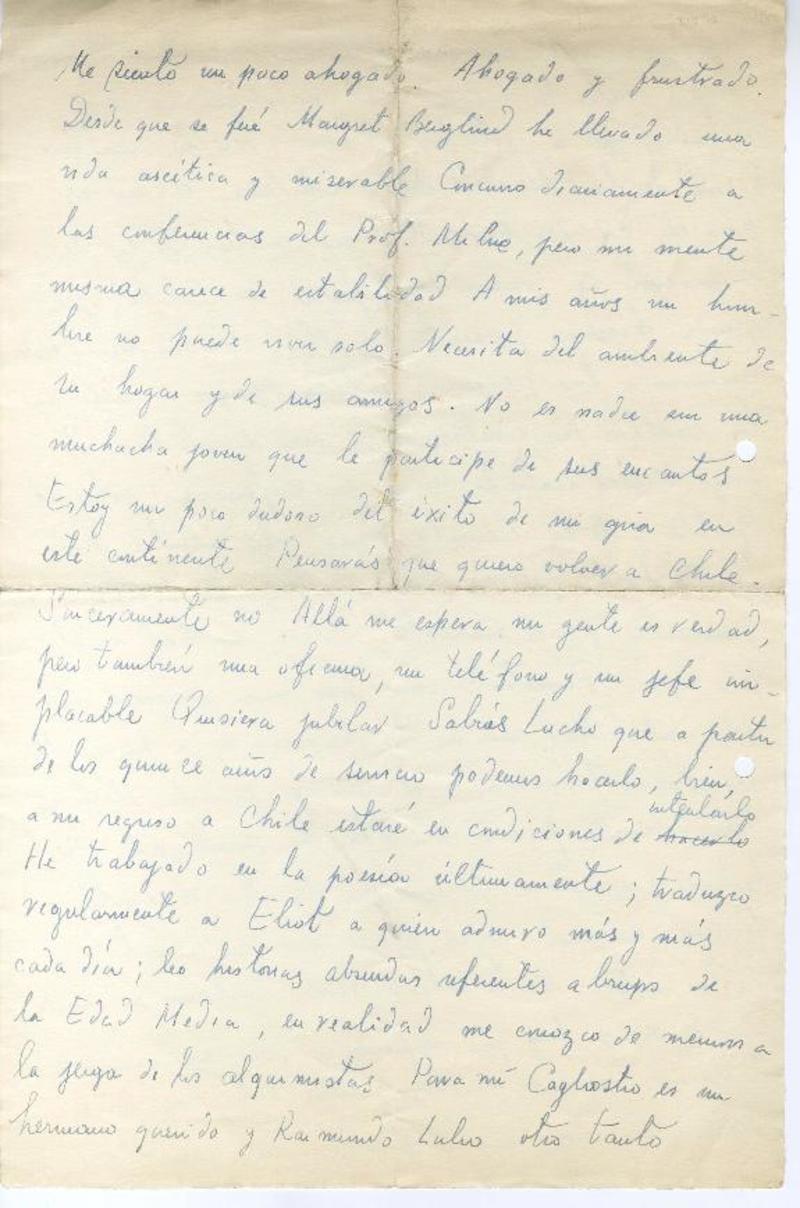 Me siento un poco ahogado. Ahogado y frustrado.
Desde que se fué Margret Berglind he llevado una
vida ascética y miserable Concurro diariamente a
las conferencias del Prof. Milne, pero mi mente
misma carece de estabilidad A mis años un hom-
bre no puede vivir solo. Necesita del ambiente de
su hogar y de sus amigos. No es nadie sin una
muchacha joven que le participe de sus encantos
Estoy un poco dudoso del éxito de mi gira en
este continente Pensarás que quiero volver a Chile.
Sinceramente no Allá me espera mi gente es verdad,
pero también una oficina, un teléfono y un jefe im-
placable Quisiera jubilar Sabrás Lucho que a partir
de los quince años de servicio podemos hacerlo, bien,
a mi regreso a Chile estaré en condiciones de hacerlo intentarlo
He trabajado en la poesía últimamente; traduzco
regularmente a Eliot a quién admiro más y más
cada día; leo historias absurdas referentes a brujos de
la Edad Media, en realidad me conozco de memoria
la jerga de los alquimistas Para mí Cagliostro es un
hermano querido y Raimundo Lulio otro tanto